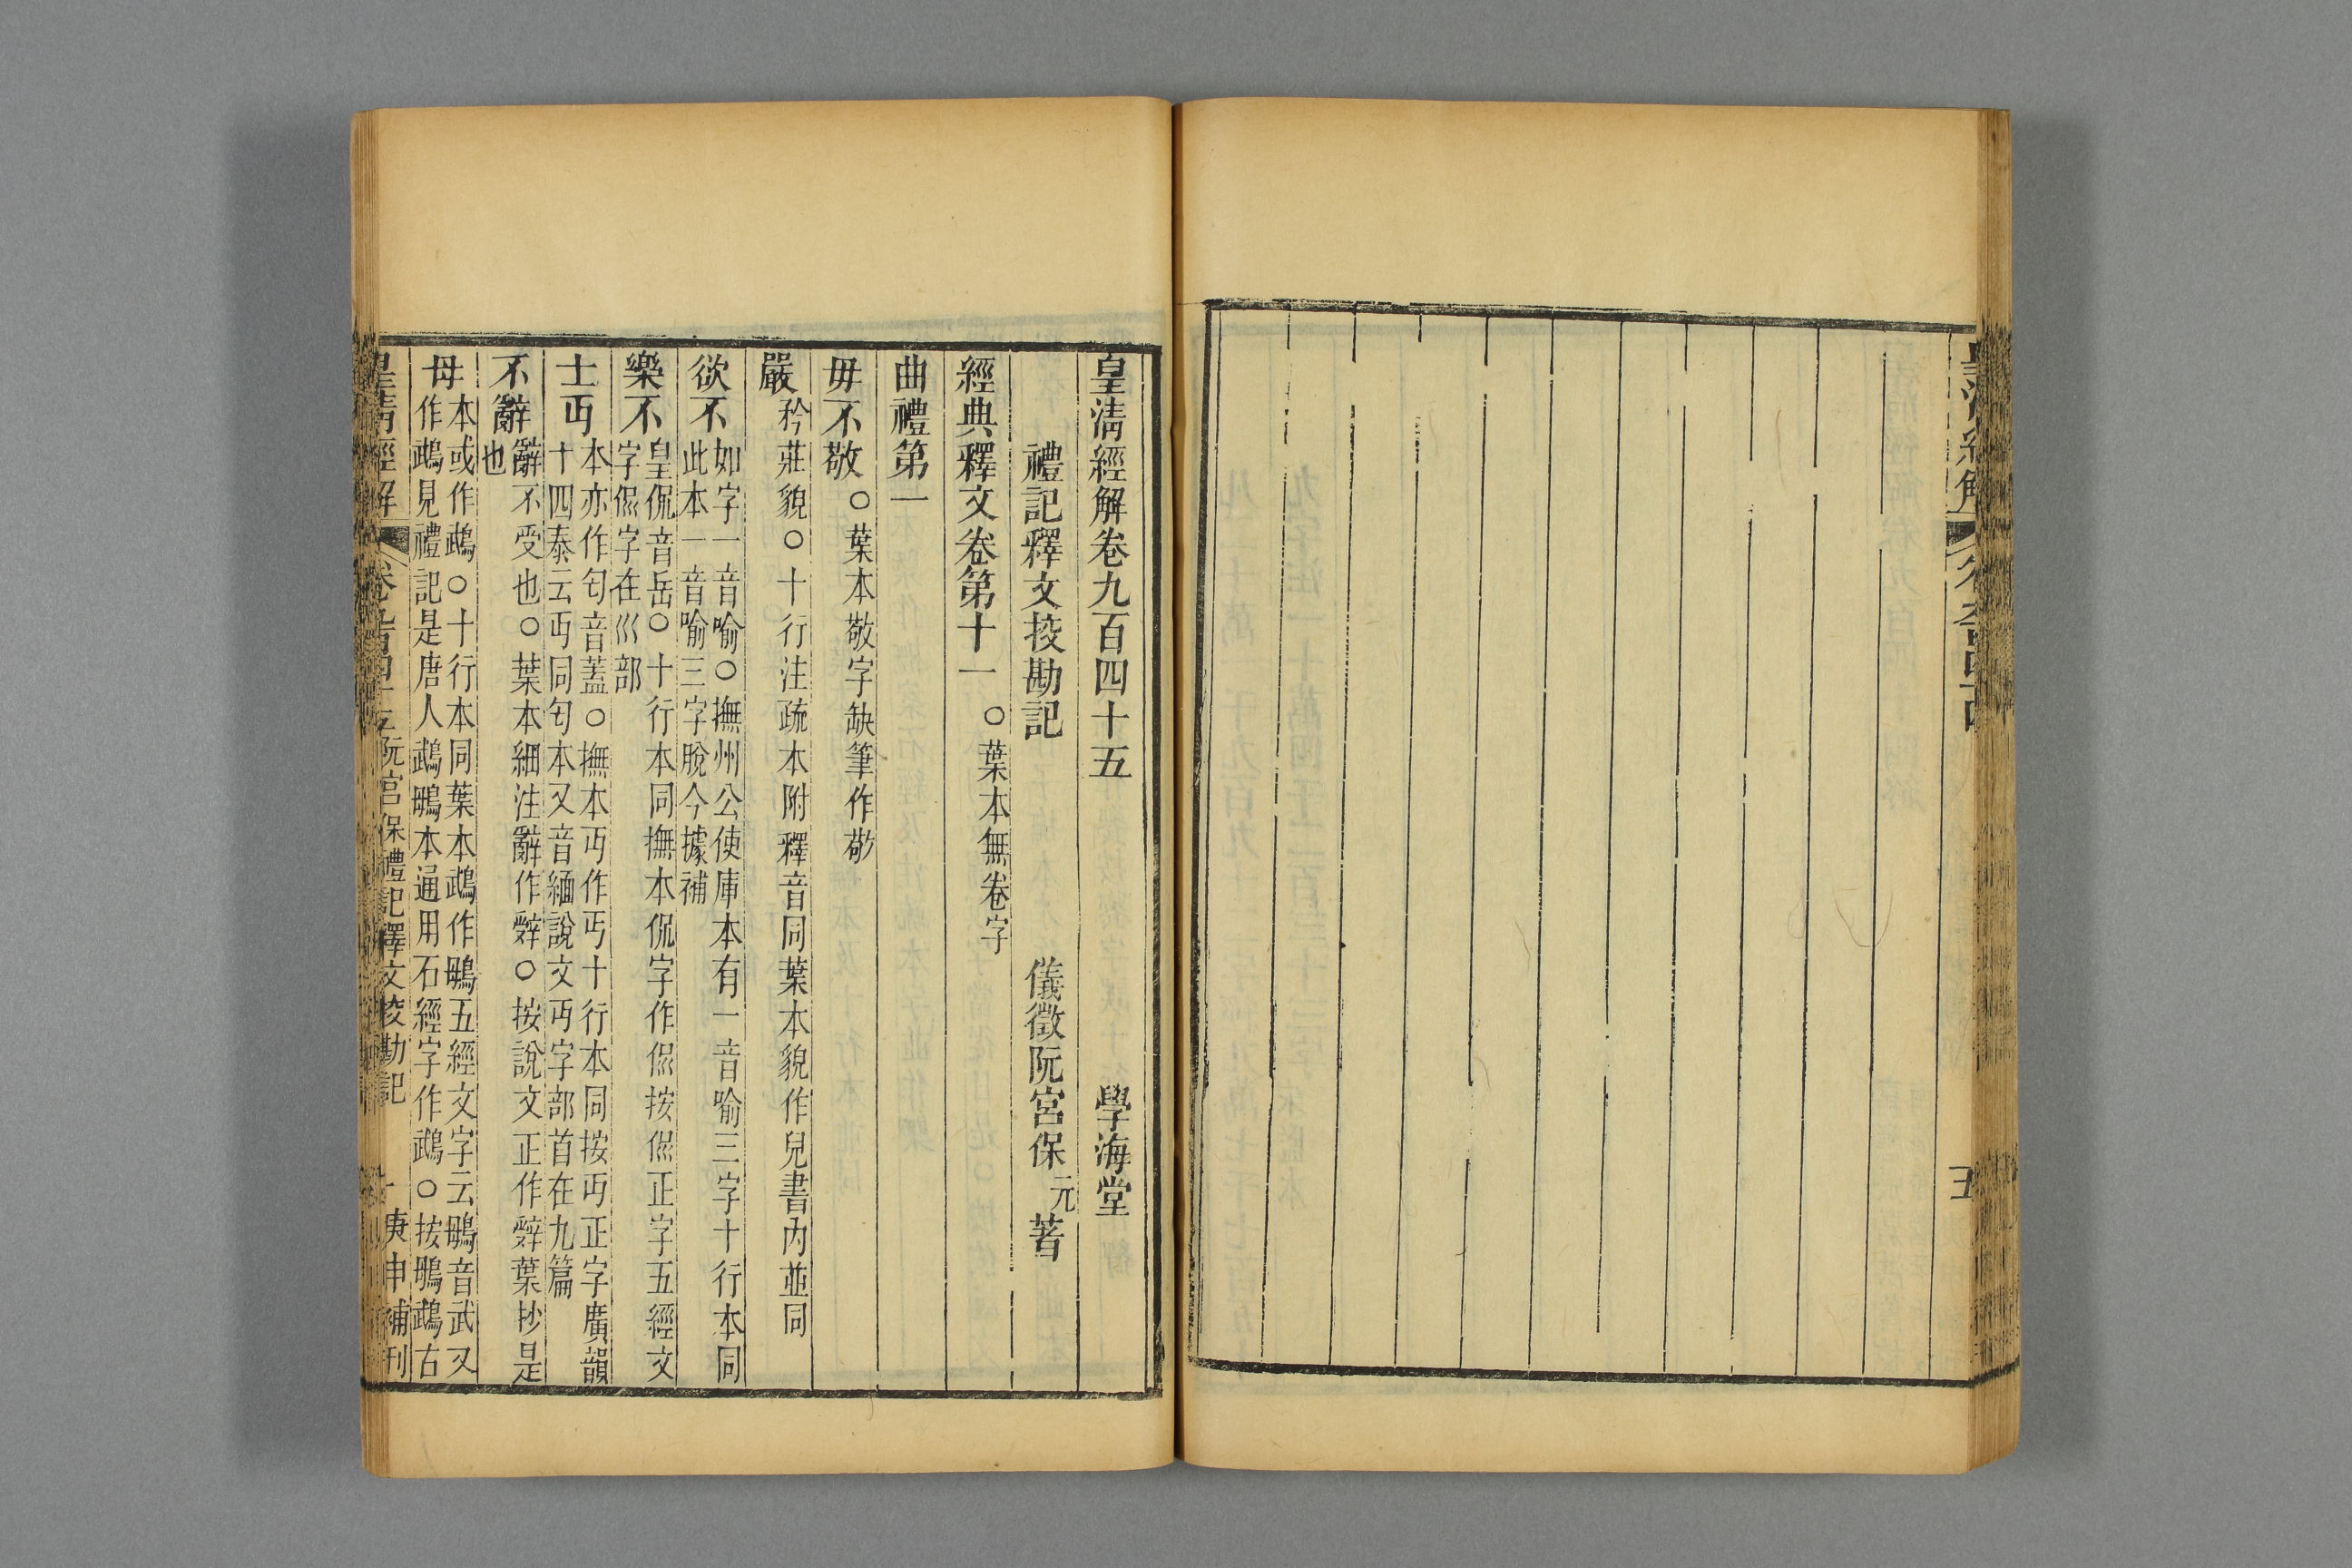 皇清經解卷九百四十五
學海堂
禮記釋文挍勘記
儀徵阮宮保元著
經典釋文卷第十一 ○葉本無卷字
曲禮第一
毋不敬 ○葉本敬字缺筆作敬
嚴 矜莊貌○十行注疏本附釋音同葉本貌作皃書內並同
欲不 如字一音喻○撫州公使庫本有一音喻三字十行本同
此本一音喻三字脫今據補
樂不 皇侃音岳○十行本同撫本侃字作偘按偘正字五經文
字偘字在巛部
士丐 本亦作匄音蓋○撫本丐作丐十行本同按丐正字廣韻
十四泰云丐同匄本又音緬說文丏字部首在九篇
不辭 辭不受也○葉本細注辭作辤○按說文正作辤葉抄是
也
母 本或作䳇○十行本同葉本䳇作鴟五經文字云鴟音武又
作䳇見禮記是唐人䳇鴟本通用石經字作䳇○按鴟䳇古
皇清經解
卷九百四十五
阮宮保禮記釋文挍勘記
一
庚申補刊
皇清經解